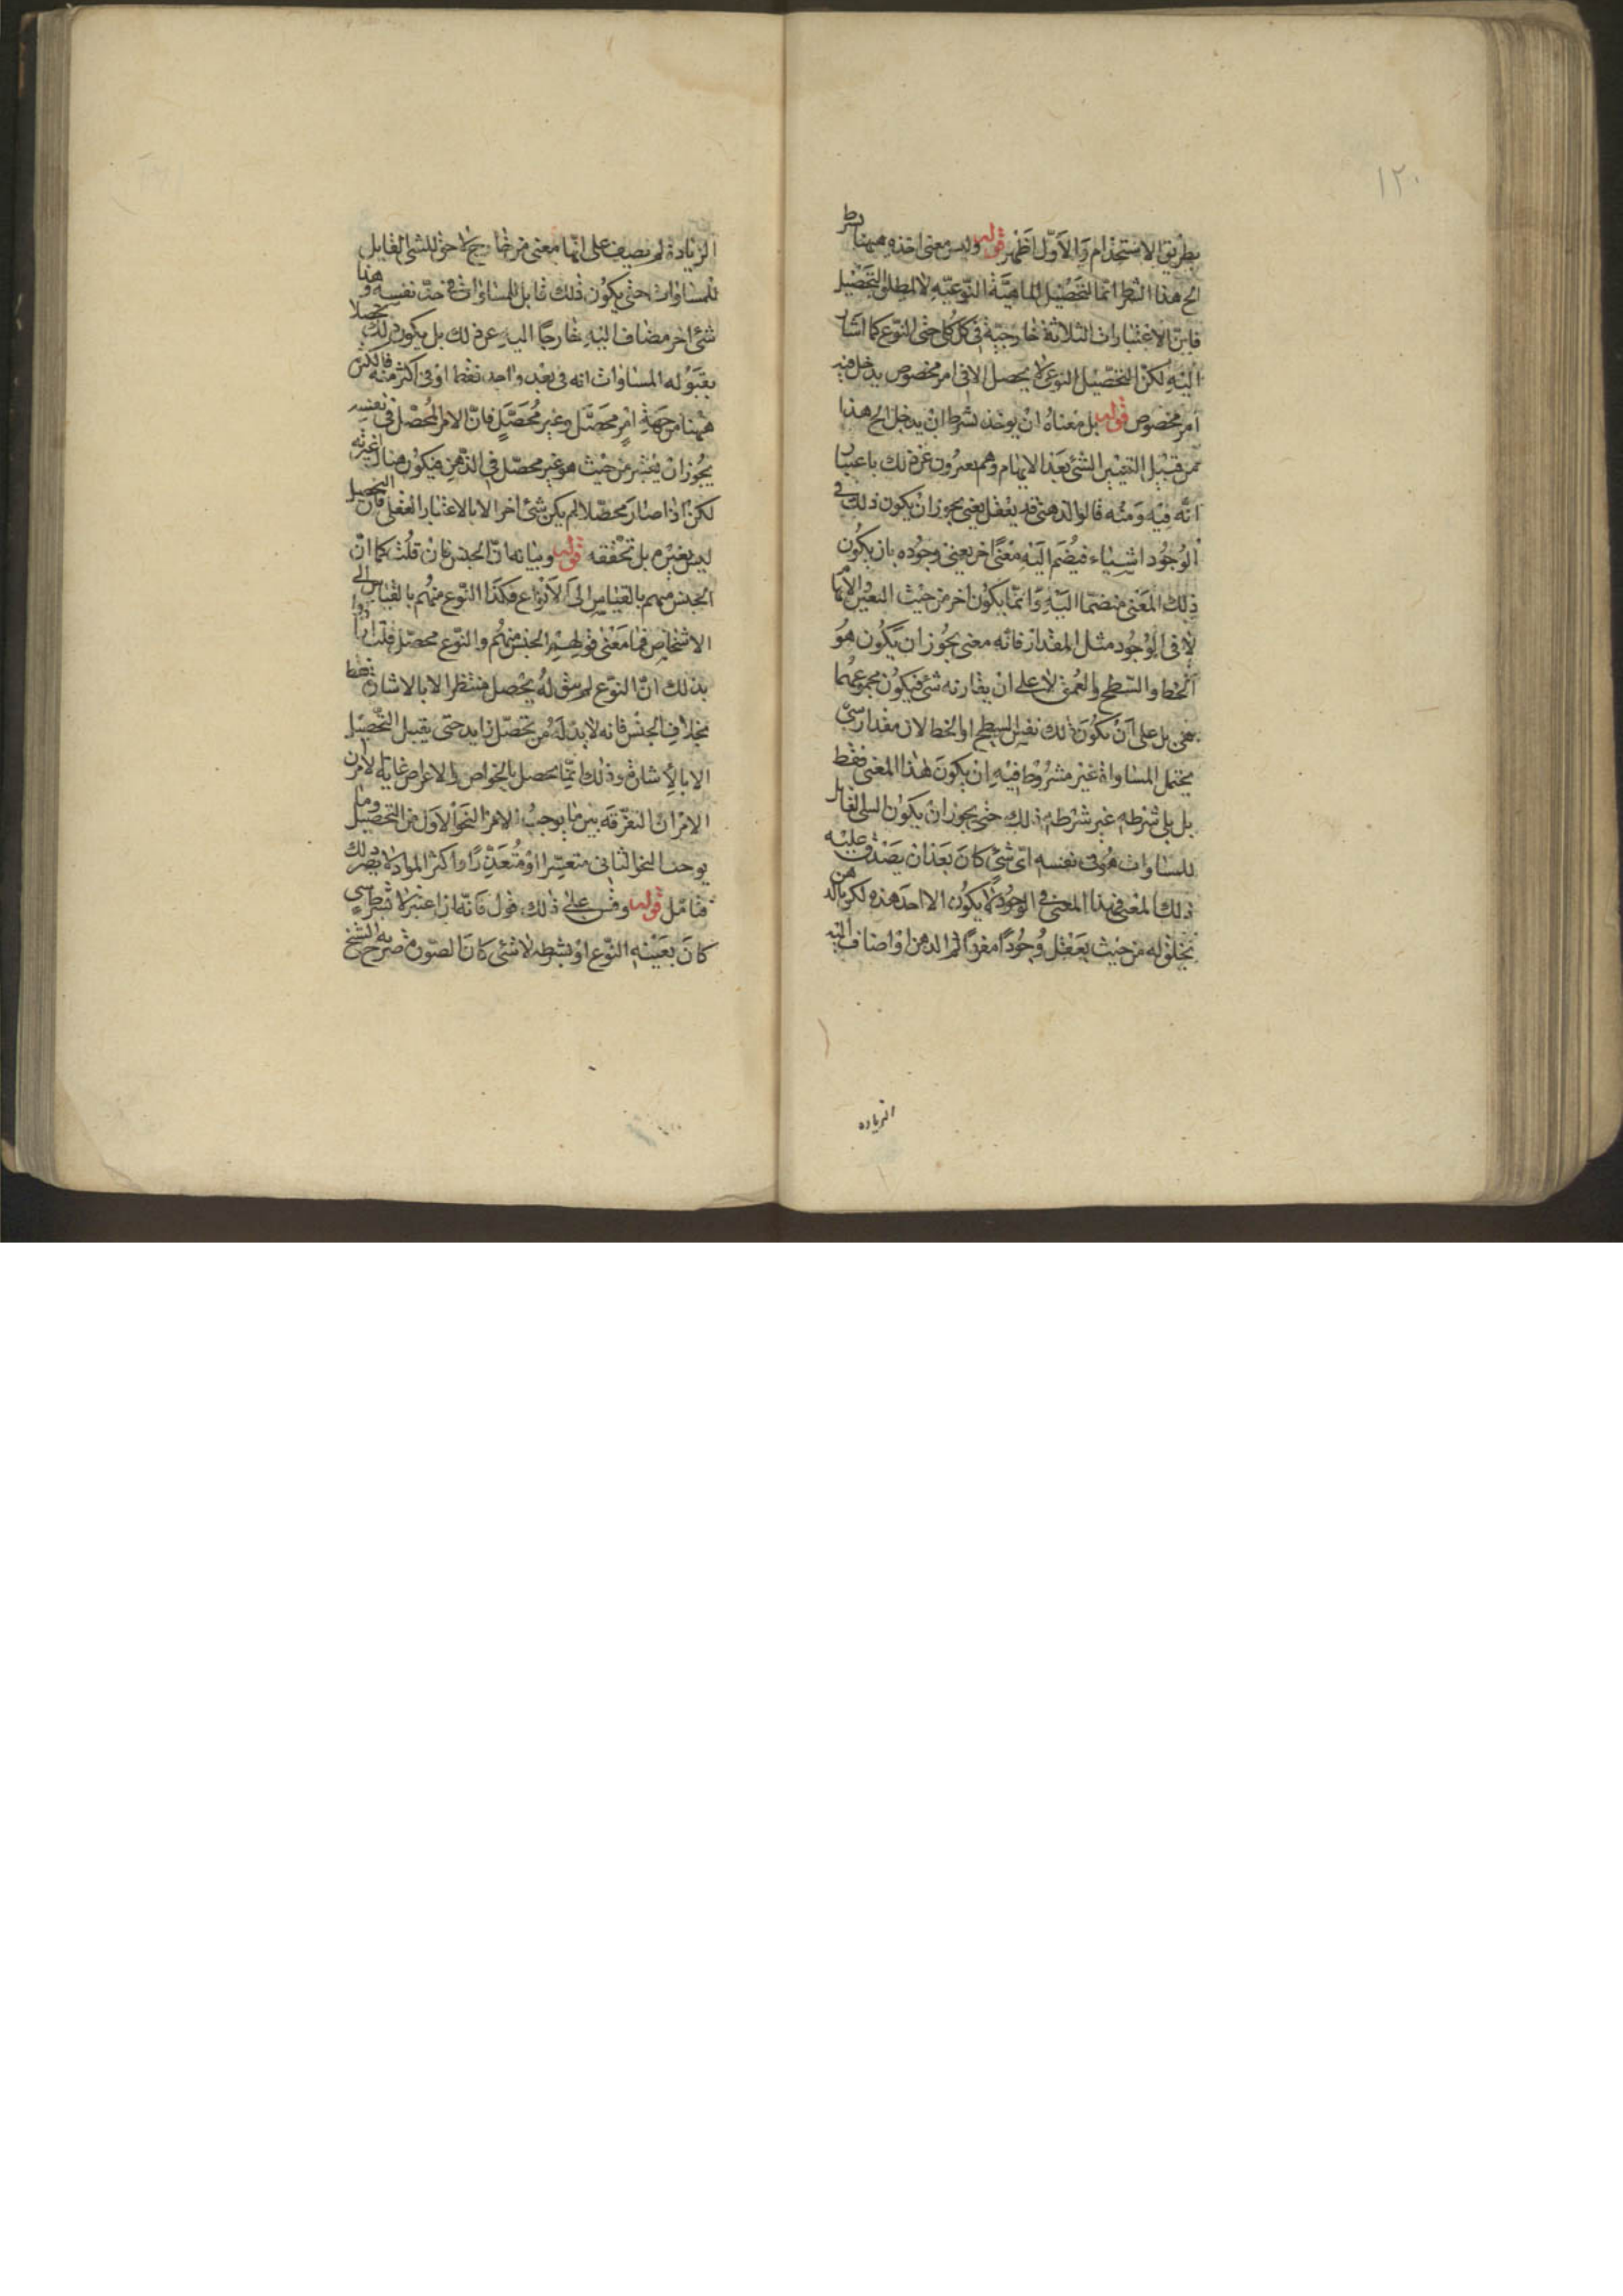 ١٢٠
بطريق الاستخدام والاول اظهر قوله وليس معنى اخذه ههنا بشرط
الخ هذا الشرط انما لتحصيل الماهية النوعية لا لمطلق التحصيل
فان الاعتبارات الثلاثة خارجية في كل كلى حتى النوع كما اشار
اليه لكن التحصيل النوعى لا يحصل الا فى امر مخصوص يدخل فيه
امر مخصوص قوله بل معناه ان يوخذ بشرط ان يدخل الخ هذا
من قبيل التعيين الشئ بعد الابهام وهم يعبرون عن ذلك باعتبار
انه فيه ومنه قالوا الذهن قد يعقل معنى يجوز ان يكون ذلك فى
الوجود اشياء فيضم اليه معنى اخر يعين وجوده بان يكون
ذلك المعنى منضما اليه وانما يكون اخر من حيث التعين الابهام
لا فى الوجود مثل المقدار فانه معنى يجوز ان يكون هو
الخط والسطح والعمق لا على ان يقارنه شئ فيكون مجموعهما
بل على ان يكون ذلك نفس السطح او الخط لان مقدار شئ
يحتمل المساواة غير مشروط فيه ان يكون هذا المعنى فقط
بل بلا شرطه غير شرطه ذلك حتى يجوز ان يكون الشئ القابل
للمساوات هو فى نفسه اى شئ كان بعد ان يصدق عليه
ذلك المعنى فهذا المعنى فى الوجود لا يكون الا احد هذه لكن الذهن
يخلق له من حيث يعقل وجودا مفردا ثم الذهن اذا اضاف اليه
الزياده
الزيادة لم يضيف على انها معنى من خارج لاحق للشئ القابل
للمساوات حتى يكون ذلك قابل للمساوات فى حد نفسه وهذا
شئ اخر مضاف اليه خارجا اليه عن ذلك بل يكون ذلك تحصيلا
بقبوله المساوات انه فى بعد واحد فقط او فى اكثر منه فالكثرة
ههنا من جهة امر محصل وغير محصل فان الامر المحصل فى نفسه
يجوز ان يعتبر من حيث هو غير محصل فى الذهن فيكون هناك غيرية
لكن اذا صار محصلا لم يكن شئ اخر الا بالاعتبار العقلى فان التحصيل
ليس يغيره بل تحققه قوله وبيانه ان الجنس فان قلت كما ان
الجنس مبهم بالقياس الى الانواع فكذا النوع مبهم بالقياس الى
الاشخاص فما معنى قولهم الجنس مبهم والنوع محصل قلت ارادوا
بذلك ان النوع لم يبق له تحصيل منتظر الا بالاشارة فقط
بخلاف الجنس فانه لا بد له من تحصل زايد حتى يقبل التحصيل
الا بالاشارة وذلك انما يحصل بالخواص الاعراض غاية الامر ان
الامران التفرقة بين ما يوجب الامر النحو الاول من التحصيل وما
يوجب النحو الثانى متعسرا او متعذرا واكثر المواد لا يضر ذلك
فتامل قوله وقس على ذلك قول فانه اذا اعتبر لا بشرط شئ
كان بعينه النوع او بشرط لا شئ كان الصورة صرح به الشيخ